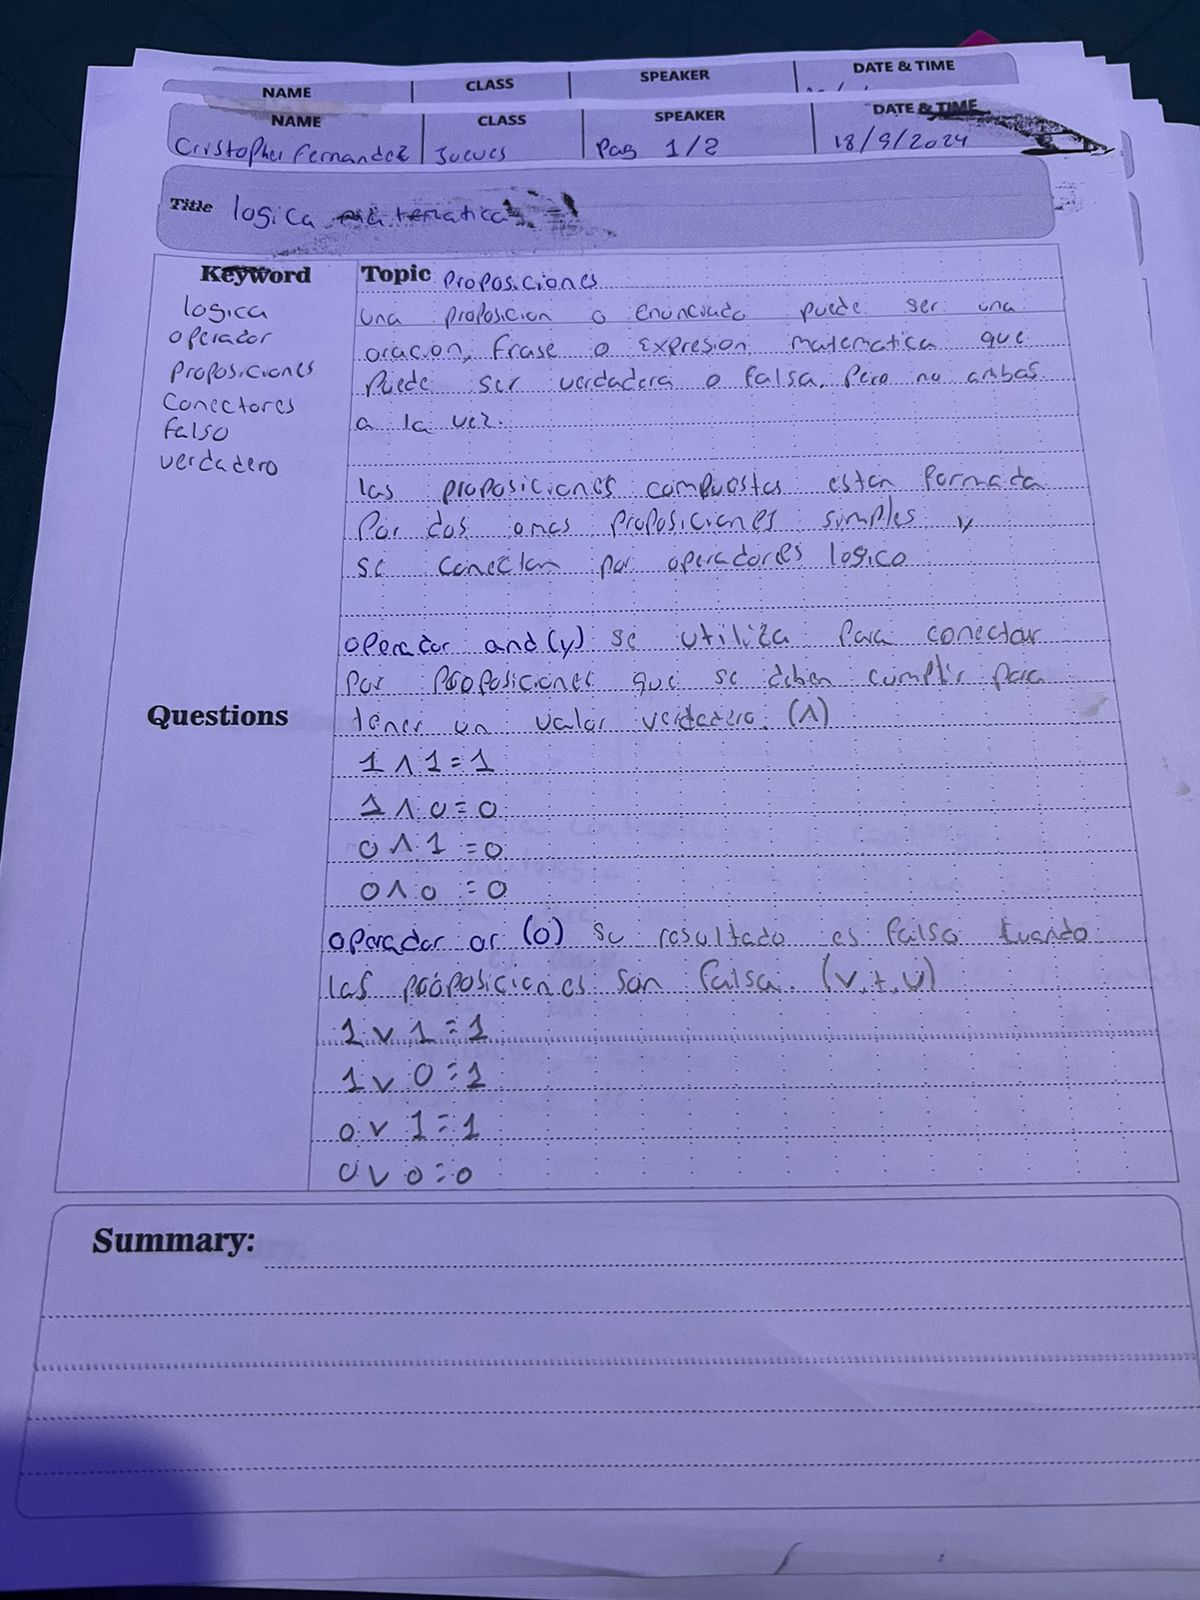 NAME CLASS SPEAKER DATE & TIME
NAME CLASS SPEAKER DATE & TIME
Cristopher Fernandez Jueves Pag 1/2 18/9/2024
Title logica matematica
Keyword
logica
operador
proposiciones
Conectores
falso
verdadero
Questions
Topic proposiciones
una proposicion o enunciado puede ser una
oracion, frase o expresion matematica que
puede ser verdadera o falsa, pero no ambas
a la vez.
las proposiciones compuestas estan formada
por dos o mas proposiciones simples y
se conectan por operadores logico
operador and (y) se utiliza para conectar
por proposiciones que se deben cumplir para
tener un valor verdadero. (∧)
1 ∧ 1 = 1
1 ∧ 0 = 0
0 ∧ 1 = 0
0 ∧ 0 = 0
operador or (o) su resultado es falso cuando
las proposiciones son falsa. (v, +, U)
1 v 1 = 1
1 v 0 = 1
0 v 1 = 1
0 v 0 = 0
Summary: